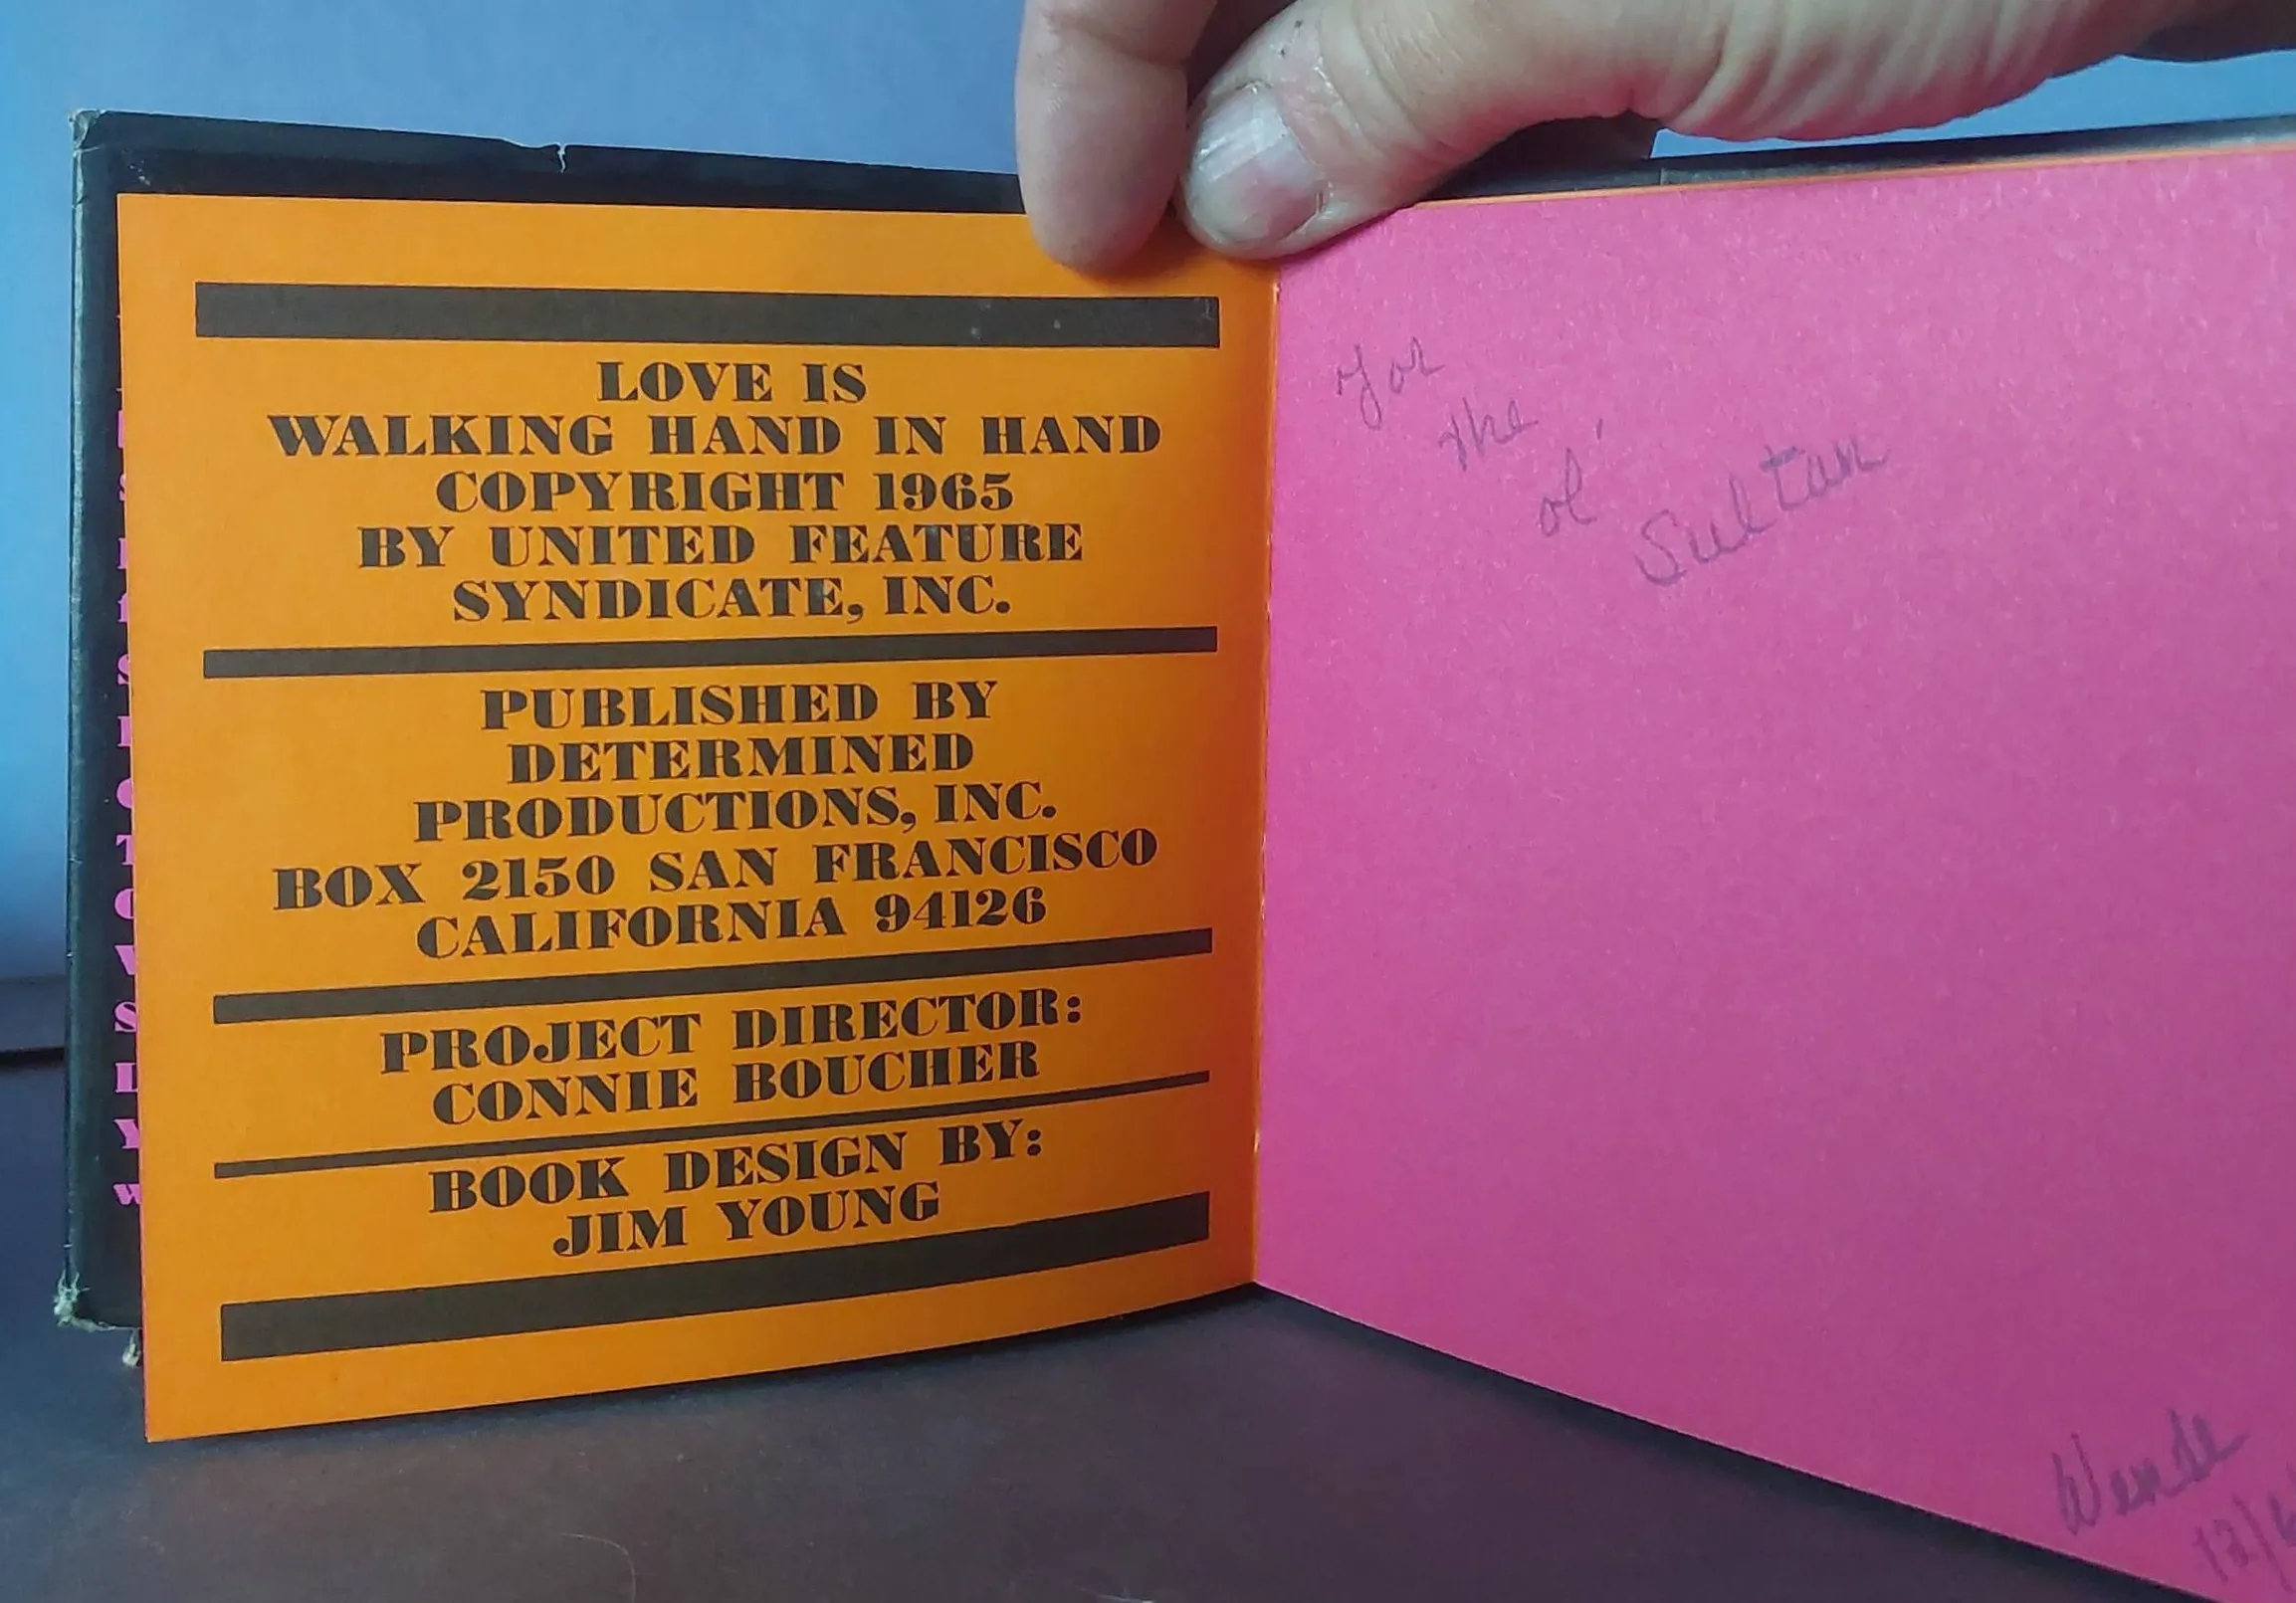 LOVE IS
WALKING HAND IN HAND
COPYRIGHT 1965
BY UNITED FEATURE
SYNDICATE, INC.
PUBLISHED BY
DETERMINED
PRODUCTIONS, INC.
BOX 2150 SAN FRANCISCO
CALIFORNIA 94126
PROJECT DIRECTOR:
CONNIE BOUCHER
BOOK DESIGN BY:
JIM YOUNG
For
the
ol'
Sultan